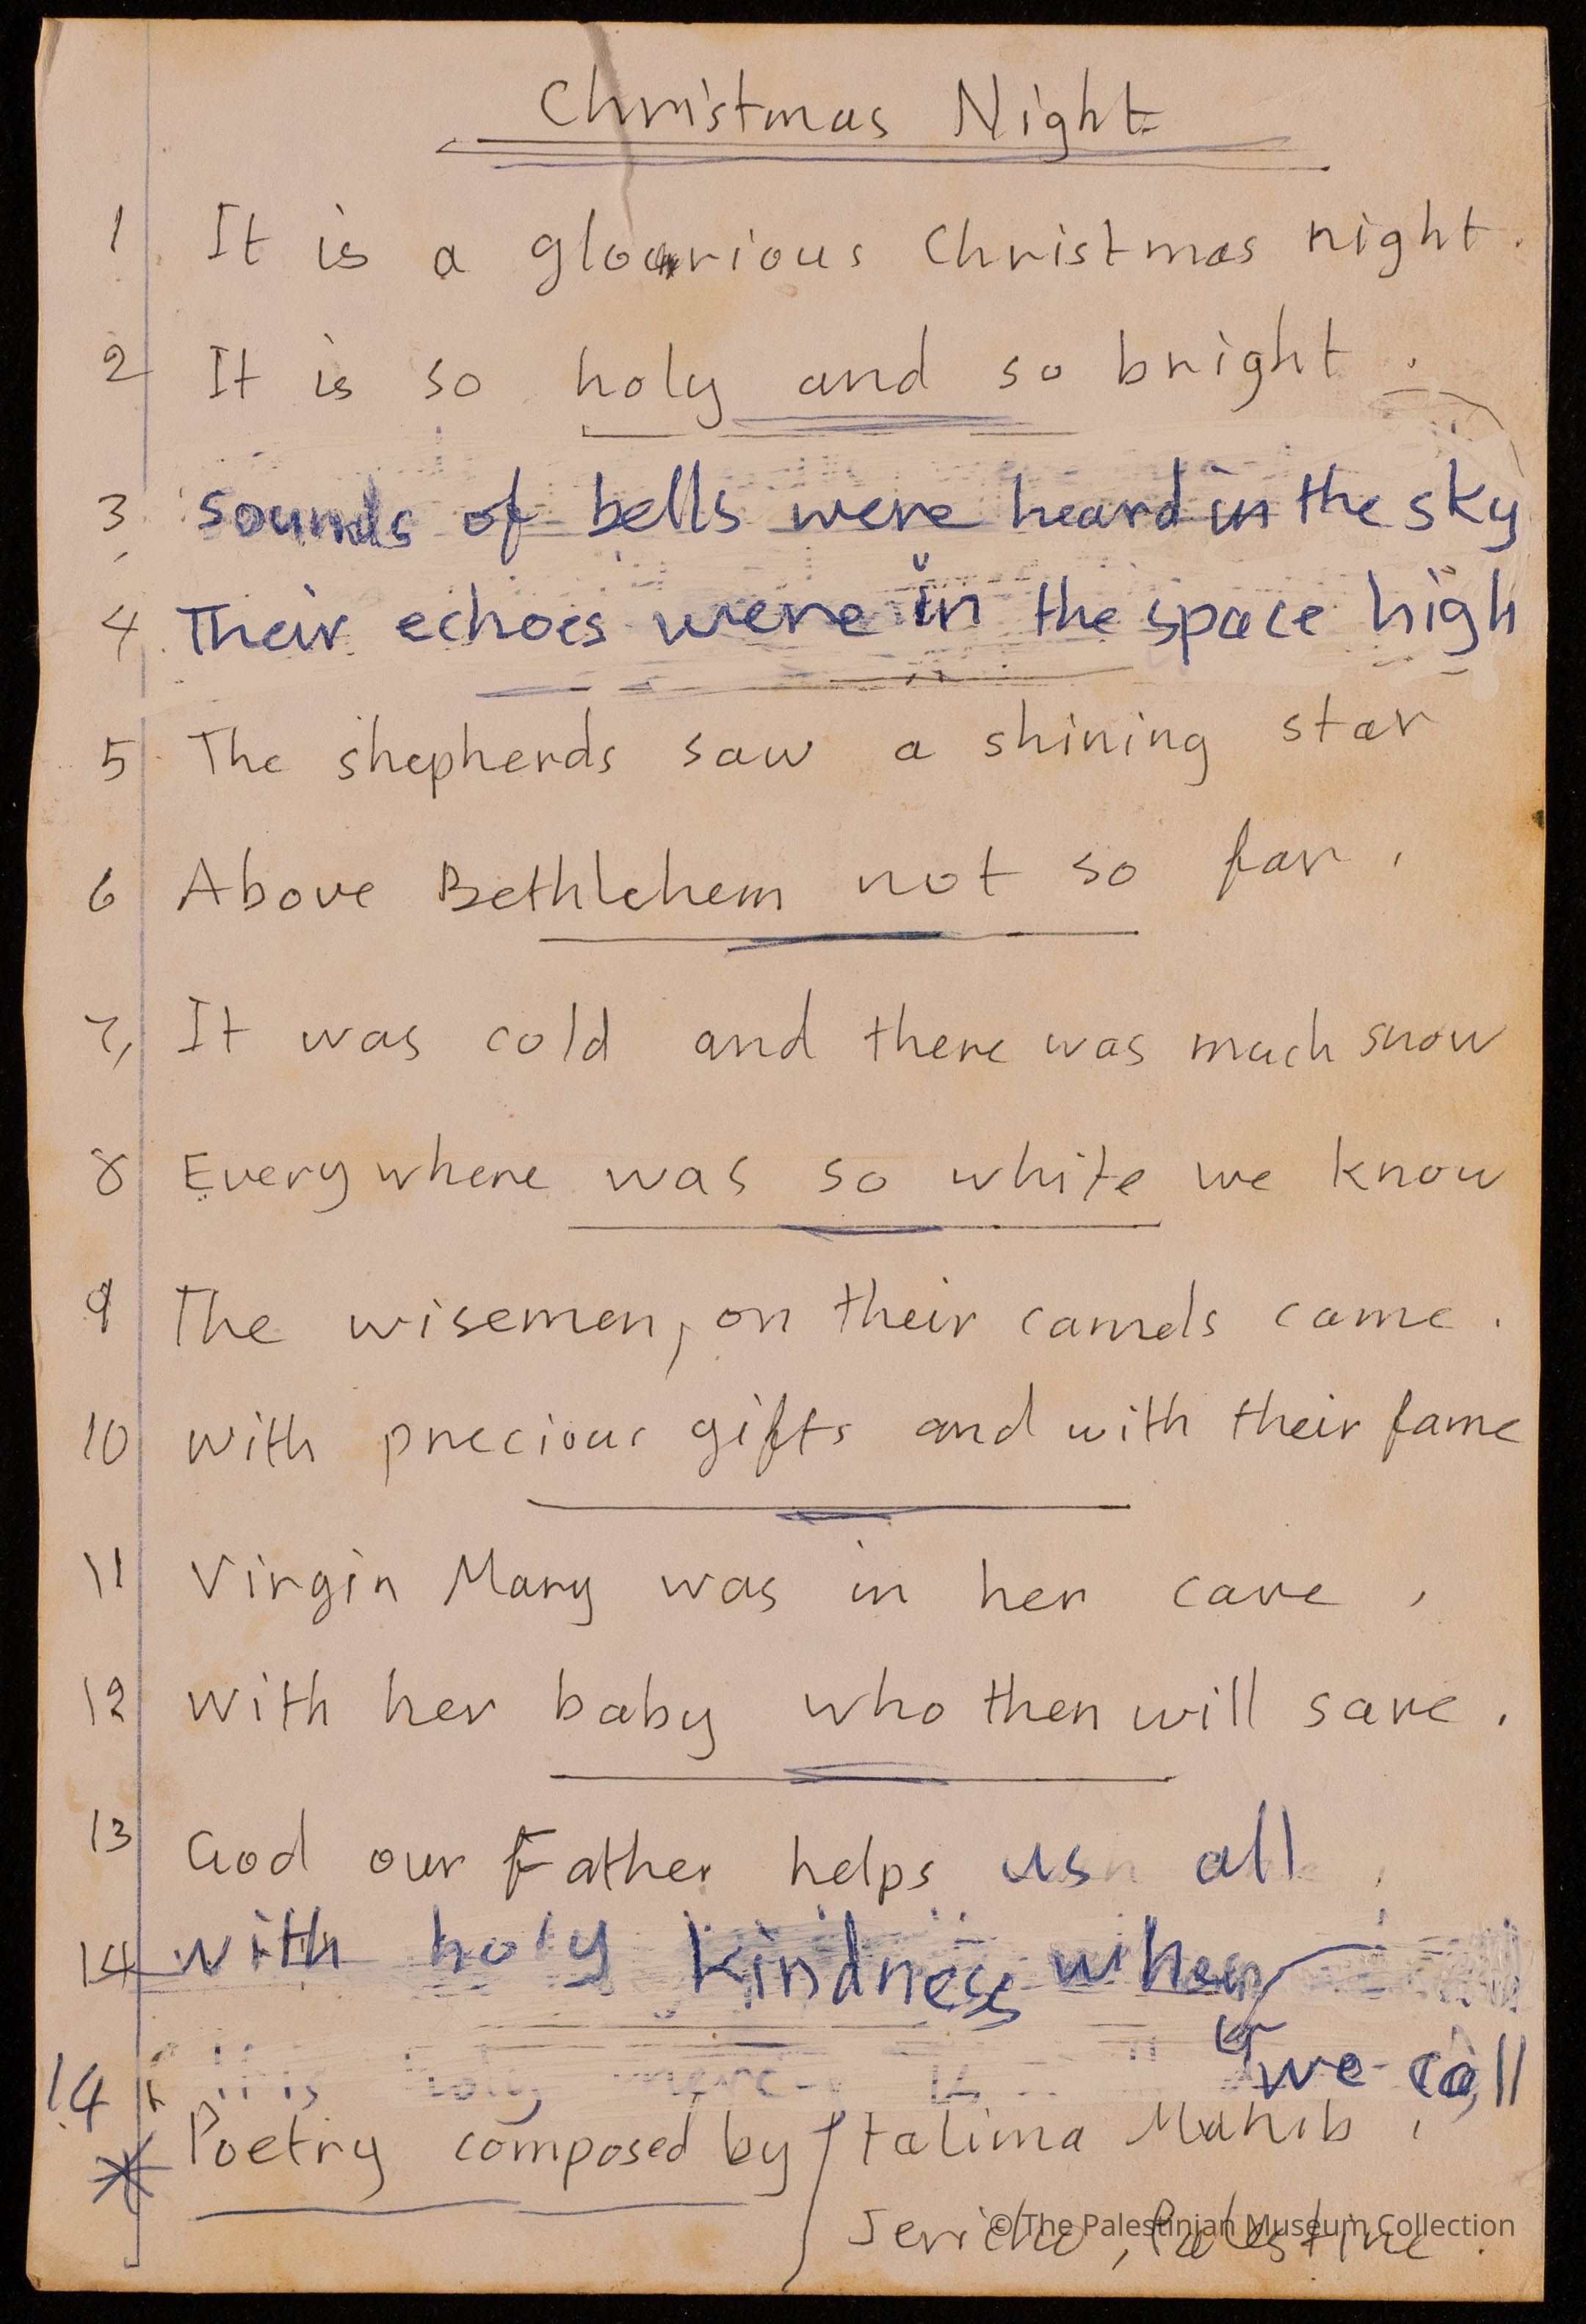 Christmas Night
1 It is a glorious Christmas night.
2 It is so holy and so bright.
3 sounds of bells were heard in the sky
4 Their echoes were in the space high
5 The shepherds saw a shining star
6 Above Bethlehem not so far.
7, It was cold and there was much snow
8 Everywhere was so white we know
9 The wisemen, on their camels came.
10 with precious gifts and with their fame
11 Virgin Mary was in her cave,
12 with her baby who then will save.
13 God our Father helps us all
14 with holy kindness when
14 we call
* Poetry composed by / Talima
Jericho, Palestine.
© The Palestinian Museum Collection